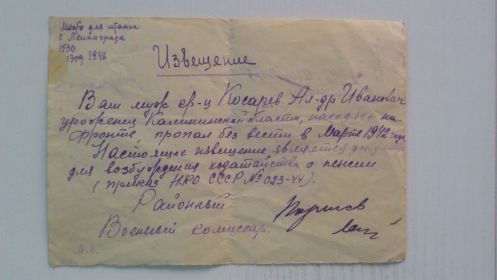 Место для штампа
г. Ленинграда
1530
1309 1946
Извещение
Ваш муж кр-ц Косарев Ал-др Иванович
уроженец Калининской области, находясь на
фронте пропал без вести в Марте 1942 года
Настоящее извещение является
для возбуждения ходатайства о пенсии
(приказ НКО СССР № 023-44).
Районный
Военный комиссар.